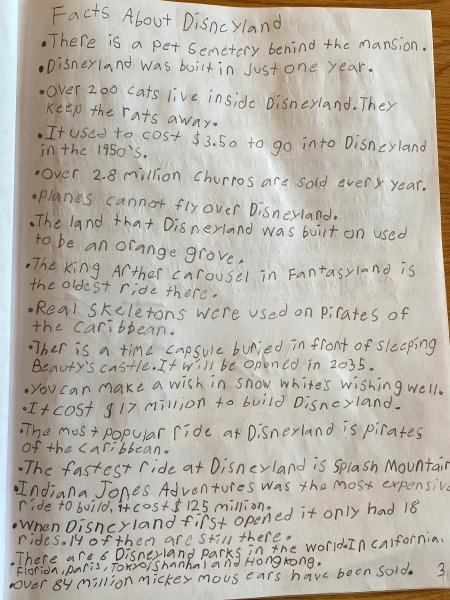 Facts About Disneyland
•There is a pet semetery behind the mansion.
•Disneyland was built in Just one year.
•Over 200 cats live inside Disneyland. They
keep the rats away.
•It used to cost $3.50 to go into Disneyland
in the 1950's.
•Over 2.8 million churros are sold every year.
•planes cannot fly over Disneyland.
•The land that Disneyland was built on used
to be an orange grove.
•The King Arther carousel in Fantasyland is
the oldest ride there.
•Real skeletons were used on pirates of
the Caribbean.
•Ther is a time capsule buried in front of sleeping
Beauty's castle. It will be opened in 2035.
•you can make a wish in snow white's wishing well.
•It cost $17 million to build Disneyland.
•The most popular ride at Disneyland is pirates
of the Caribbean.
•The fastest ride at Disneyland is Splash Mountain
•Indiana Jones Adventures was the most expensive
ride to build. it cost $125 million.
•When Disneyland first opened it only had 18
rides. 14 of them are still there.
•There are 6 Disneyland parks in the world. In Calfornia,
Florida, paris, Tokyo, Shanhai and Hongkong.
•Over 84 million mickey mous ears have been sold. 3